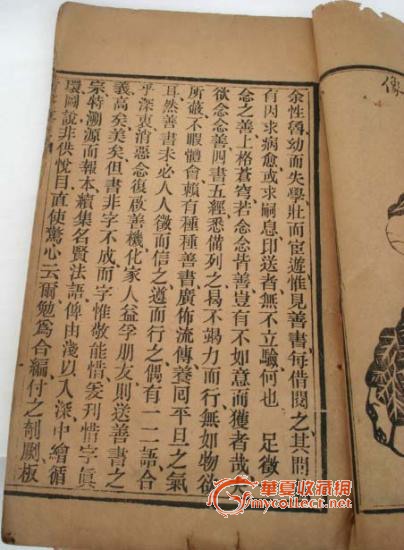 像
余性魯幼而失學壯而宦遊惟見善書每借閱之其間
有因求病愈或求嗣息印送者無不立驗何也 足徵一
念之善上格蒼穹若念念皆善豈有不如意而獲者哉夫
欲念念善四書五經悉備列之曷不竭力而行無如物欲
所蔽不暇體會賴有種種善書廣佈流傳養同平旦之氣
耳然善書未必人人徵而信之遵而行之偶有一二語合
乎深衷消惡念復啟善機化家人益孚朋友則送善書之
義高矣美矣但書非字不成而字惟敬能惜爰刋惜字眞
宗特溯源而報本續集名賢法語俾由淺以入深中繪循
環圖說非供悅目直使驚心云爾勉爲合編付之剞劂板
華夏收藏網
mycollect.net